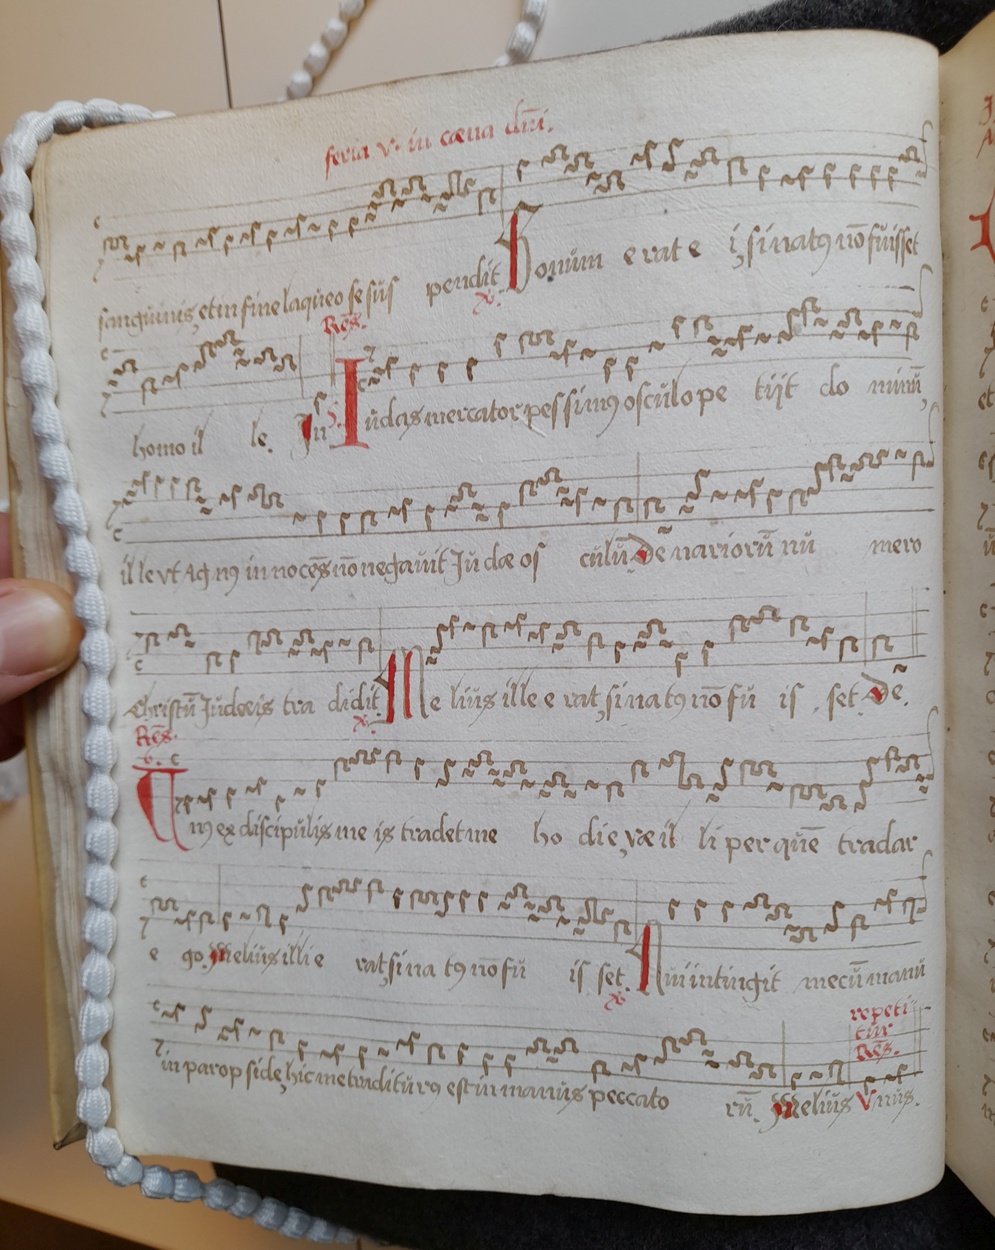 feria v. in cœna dn̄i.
sanguinis, et in fine laqueo se sus pendit Bonum erat ei, si natꝰ nō fuisset
Res.
homo il le. In Iudas mercator pessimꝰ osculo pe tijt do minū,
ille vt Agnꝰ innocēs nō negauit Iudæ os culū De nariorū nu mero
Christū Iudæis tra didit Melius ille erat, si natꝰ nō fu is set. De.
Res.
v.
Vnꝰ ex discipulis me is tradet me ho die, væ il li per quē tradar
ego. Melius illi e rat si na tꝰ nō fu is set. Qui intingit mecū manū
repeti-
tur
Res.
in parop side, hic me traditurꝰ est in manus peccato rū. Melius Vnus.